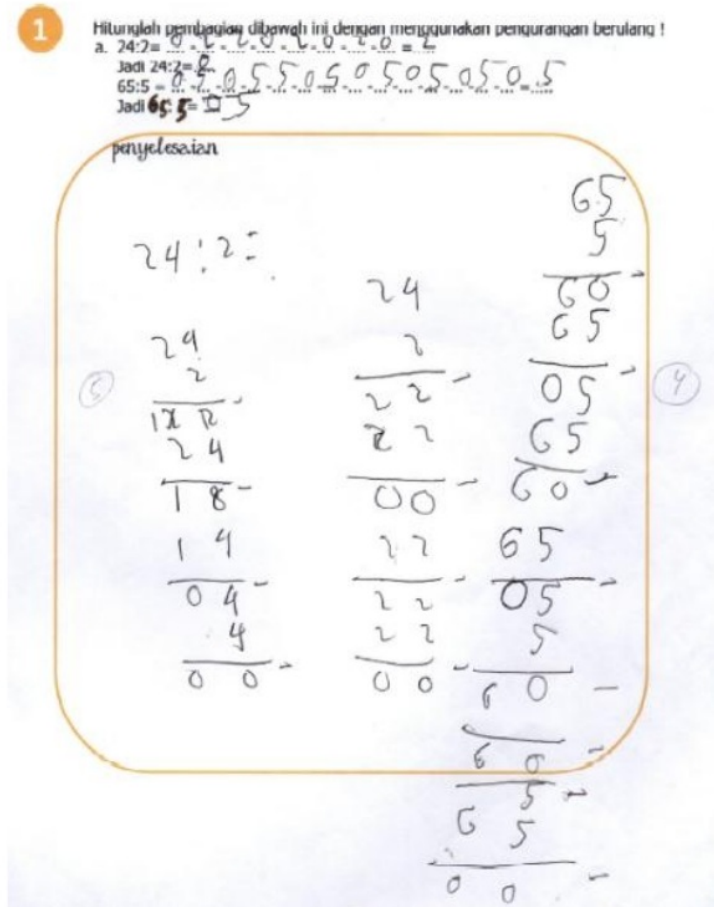 1
Hitunglah pembagian dibawah ini dengan menggunakan pengurangan berulang !
a. 24:2= 0 - 2 - 2 - 0 - 2 - 0 - 2 - 0 = 2
Jadi 24:2= 0
65:5 = 0 5 0 5 5 0 5 0 5 0 5 0 5 0 5 0 = 5
Jadi 65:5= 5
penyelesaian
24:2=
24
2
24
18
14
04
4
00
5
24
2
22
22
00
22
22
22
00
65
5
60
65
05
65
60
65
05
5
60
60
5
65
00
4